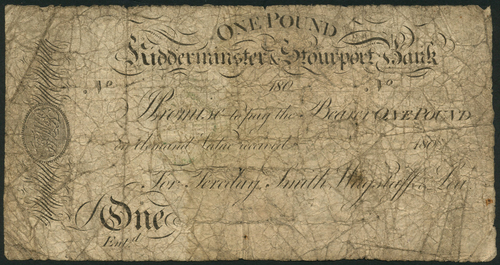 ONE POUND
Kidderminster & Stourport Bank
No 180 No
I Promise to pay the Bearer ONE POUND
on demand Value received 180
For Smith &
£ One
Entd